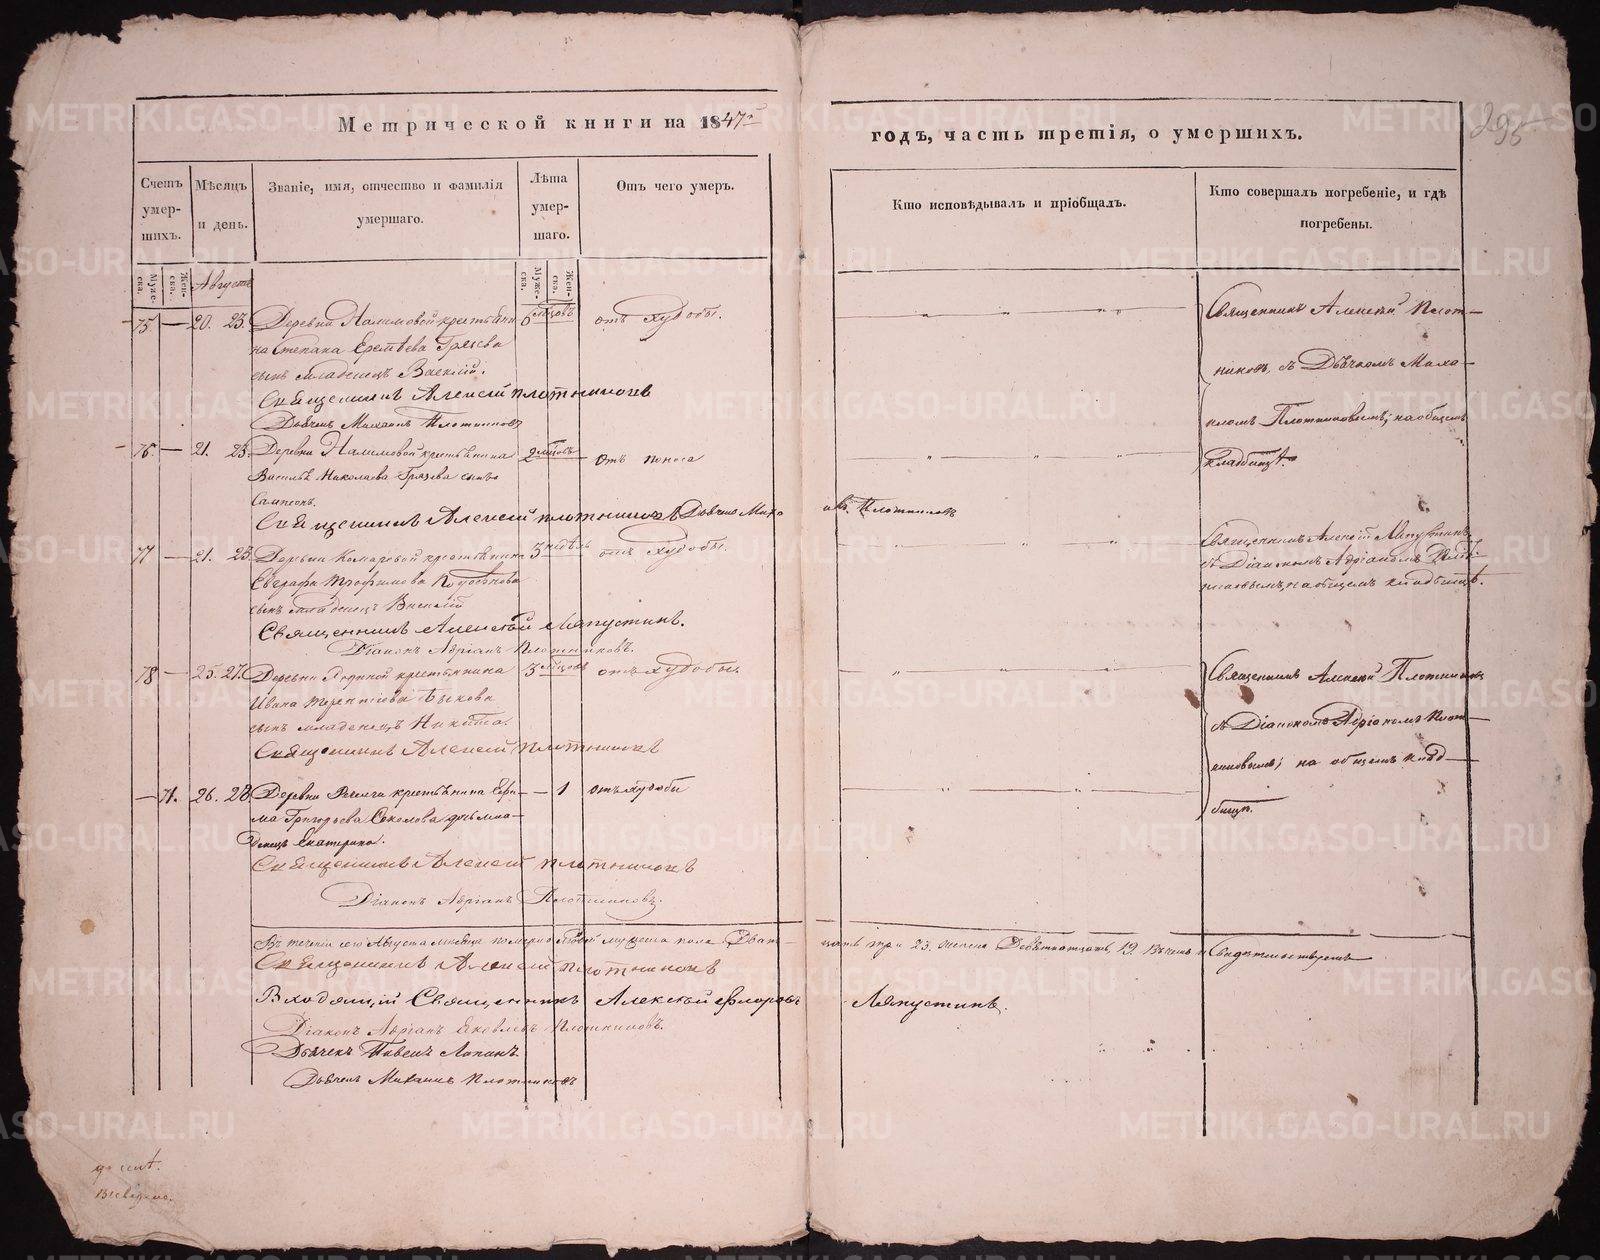 Метрической книги на 1847й
годъ, часть третія, о умершихъ.
295
Счетъ умер-шихъ.
Мѣсяцъ и день.
Званіе, имя, отчество и фамилія умершаго.
Лѣта умер-шаго.
Отъ чего умеръ.
Кто исповѣдывалъ и пріобщалъ.
Кто совершалъ погребеніе, и гдѣ погребены.
Муже-ска.
Жен-ска.
Августъ
Муже-ска.
Жен-ска.
75. — 20. 23. Деревни Налимовой крестьяни
6 мѣсцовъ отъ худобы.
на Степана Еремѣева Грязева
сынъ младенецъ Василій.
Священникъ Алексѣй Плотниковъ
Дьячекъ Михаилъ Плотниковъ
Священникъ Алексѣй Плот—
никовъ, съ Дьячкомъ Миха—
иломъ Плотниковымъ; на общемъ
кладбищѣ.
76. — 21. 23. Деревни Налимовой крестьянина
2 мѣсцовъ отъ поноса
Василья Николаева Грязева сынъ
Сампсонъ.
Священникъ Алексѣй Плотниковъ Дьячекъ Миха
илъ Плотниковъ
77 — 21. 23. Деревни Комаровой крестьянина
3 недѣль отъ худобы.
Евграфа Трофимова
сынъ младенецъ Василій
Священникъ Алексѣй Ляпустинъ.
Діаконъ Адріанъ Плотниковъ.
Священникъ Алексѣй Ляпустинъ
съ Діакономъ Адріаномъ Плот-
никовымъ, на общемъ кладбищѣ.
78 — 25. 27. Деревни крестьянина
3 мѣсцовъ отъ худобы.
Ивана Терентіева Быкова
сынъ младенецъ Никита.
Священникъ Алексѣй Плотниковъ
Священникъ Алексѣй Плотниковъ
съ Діакономъ Адріаномъ Плот—
никовымъ; на общемъ клад—
бищѣ.
— 71. 26. 28 Деревни крестьянина Ефи—
— 1 отъ худобы
ма Григорьева Соколова дочь мла—
денецъ Екатерина.
Священникъ Алексѣй Плотниковъ
Діаконъ Адріанъ Плотниковъ.
Въ теченіи сего Августа мѣсяца померло мужеска пола Двад-
цать три 23. женска Девятнатцать 19. въ чемъ и Свидѣтельствуемъ
Священникъ Алексѣй Плотниковъ
Входящій Священникъ Алексѣй Флоровъ
Ляпустинъ.
Діаконъ Адріанъ Яковлевъ Плотниковъ.
Дьячекъ Павелъ Лапинъ
Дьячекъ Михаилъ Плотниковъ
METRIKI.GASO-URAL.RU